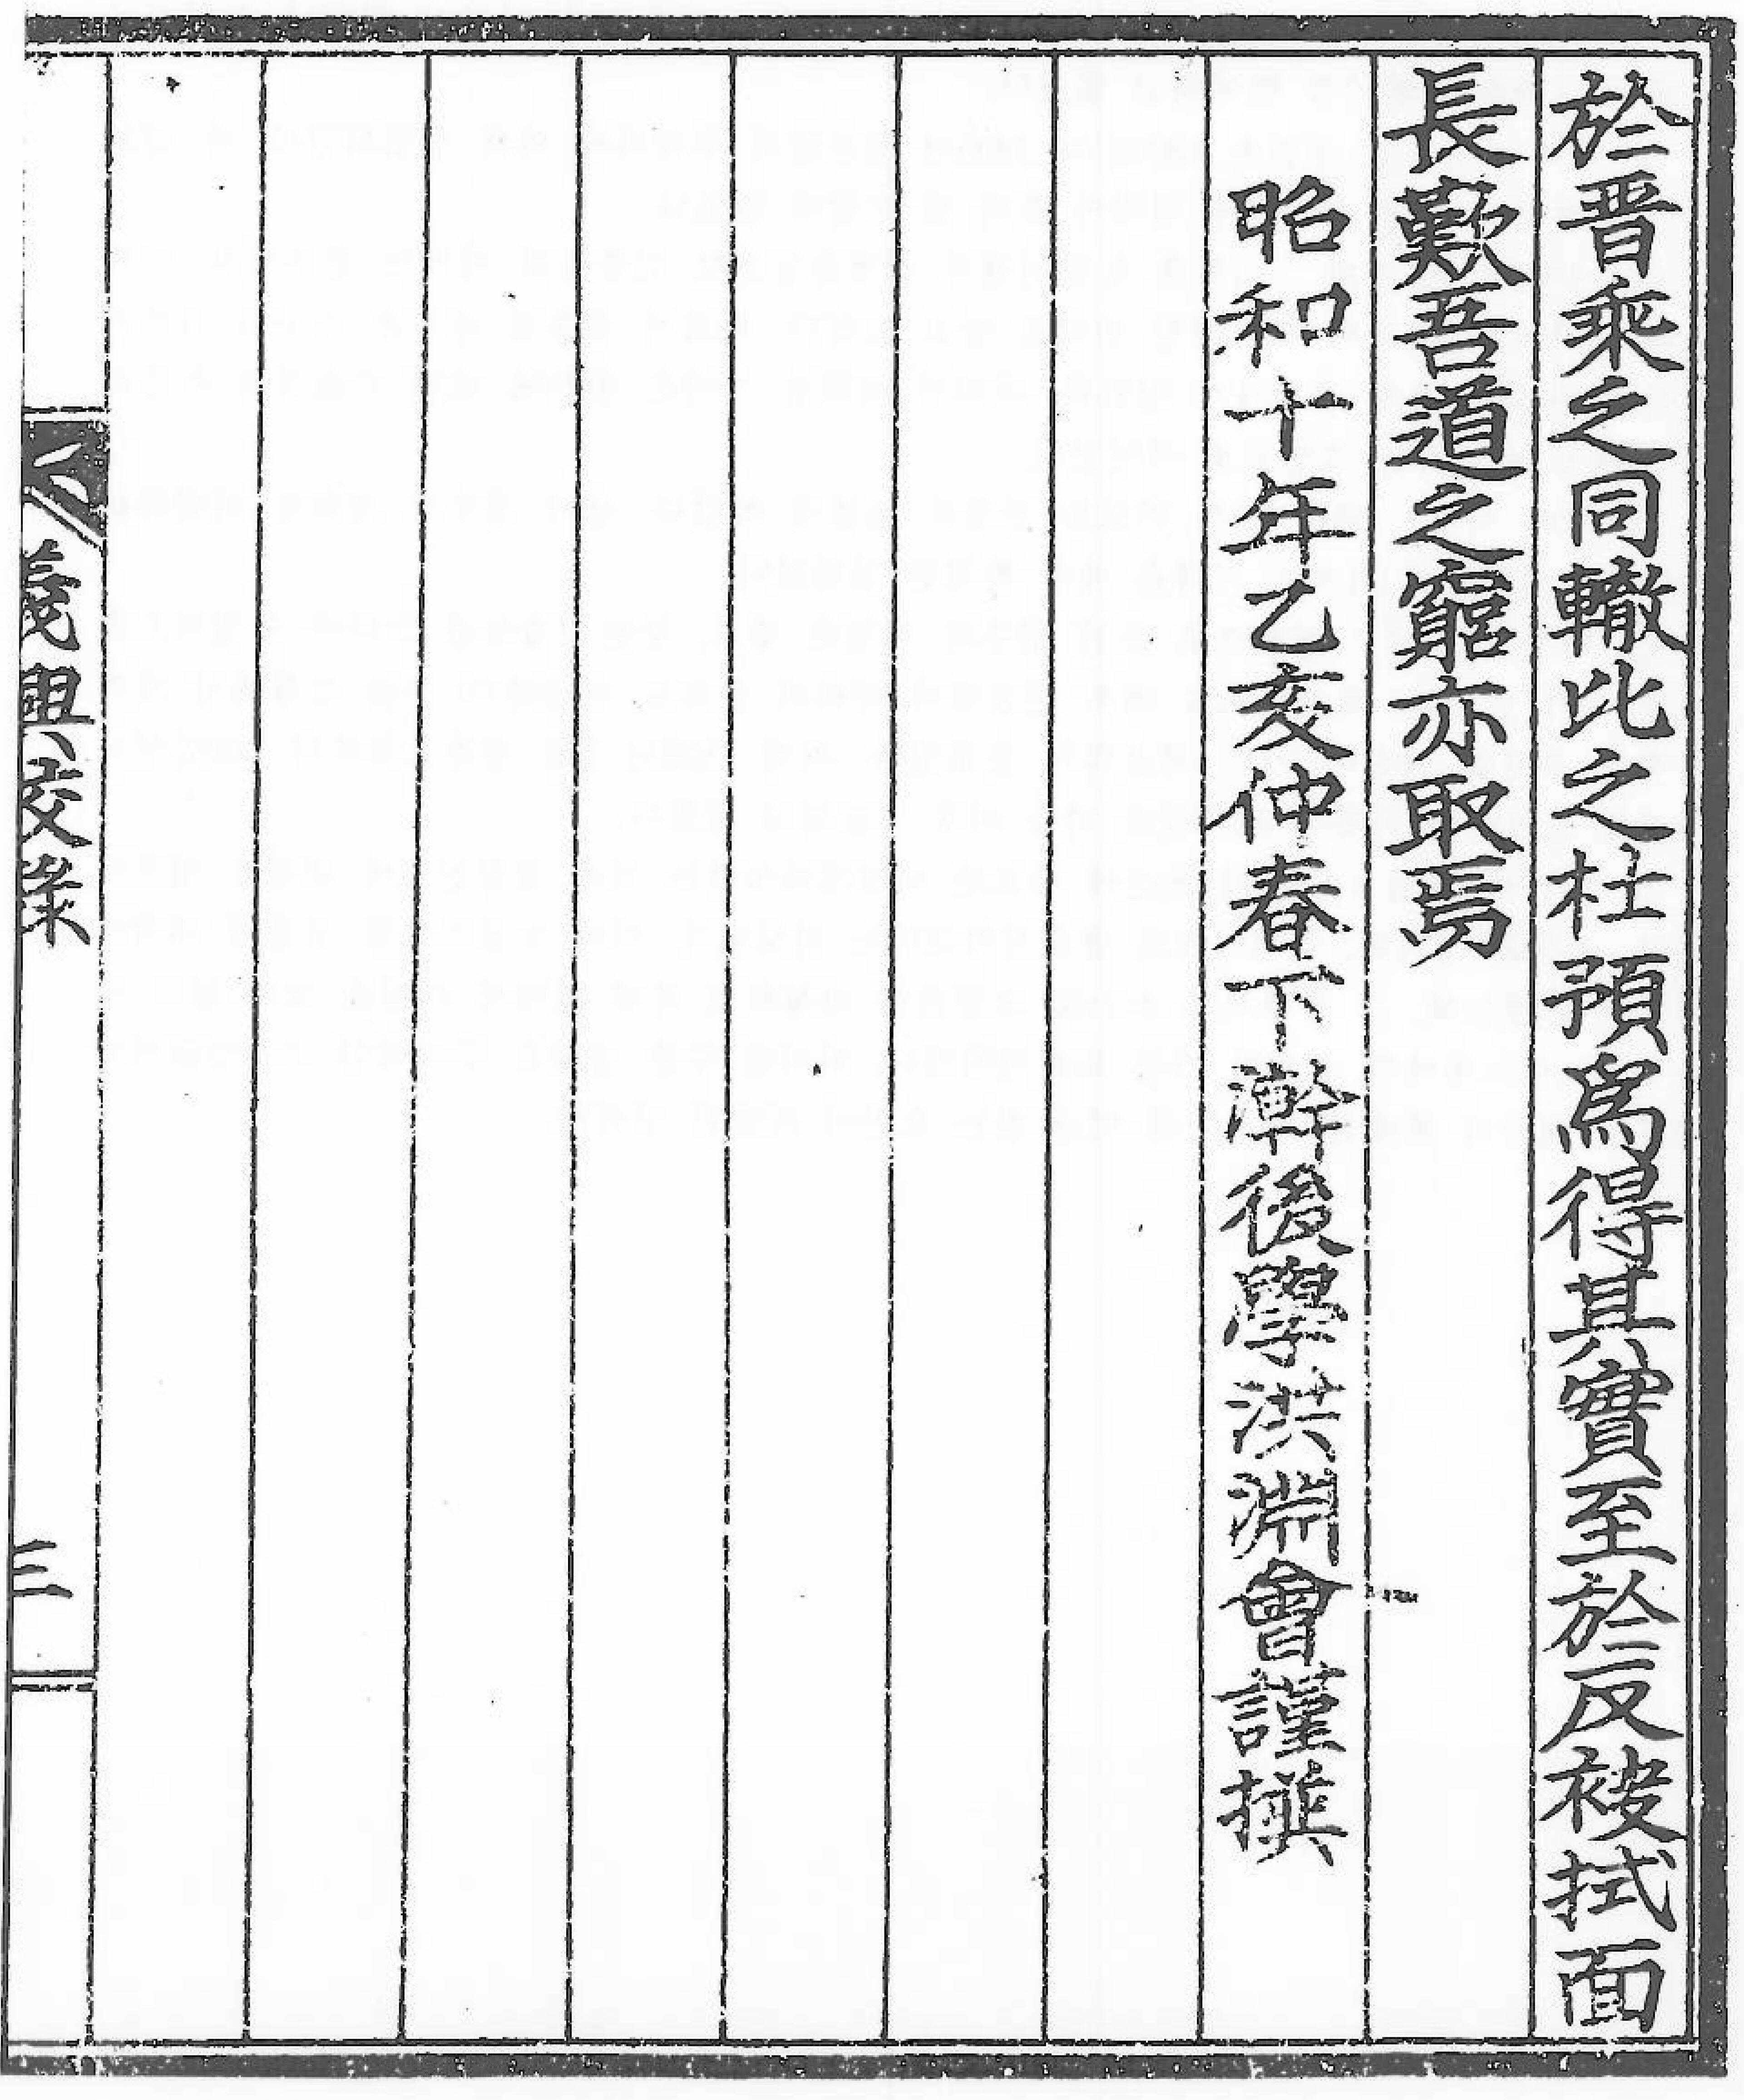 於晋乘之同轍比之杜預爲得其實至於反袂拭面
長歎吾道之窮亦取焉
昭和十年乙亥仲春下澣後學洪淵會謹撰
義興校錄
三